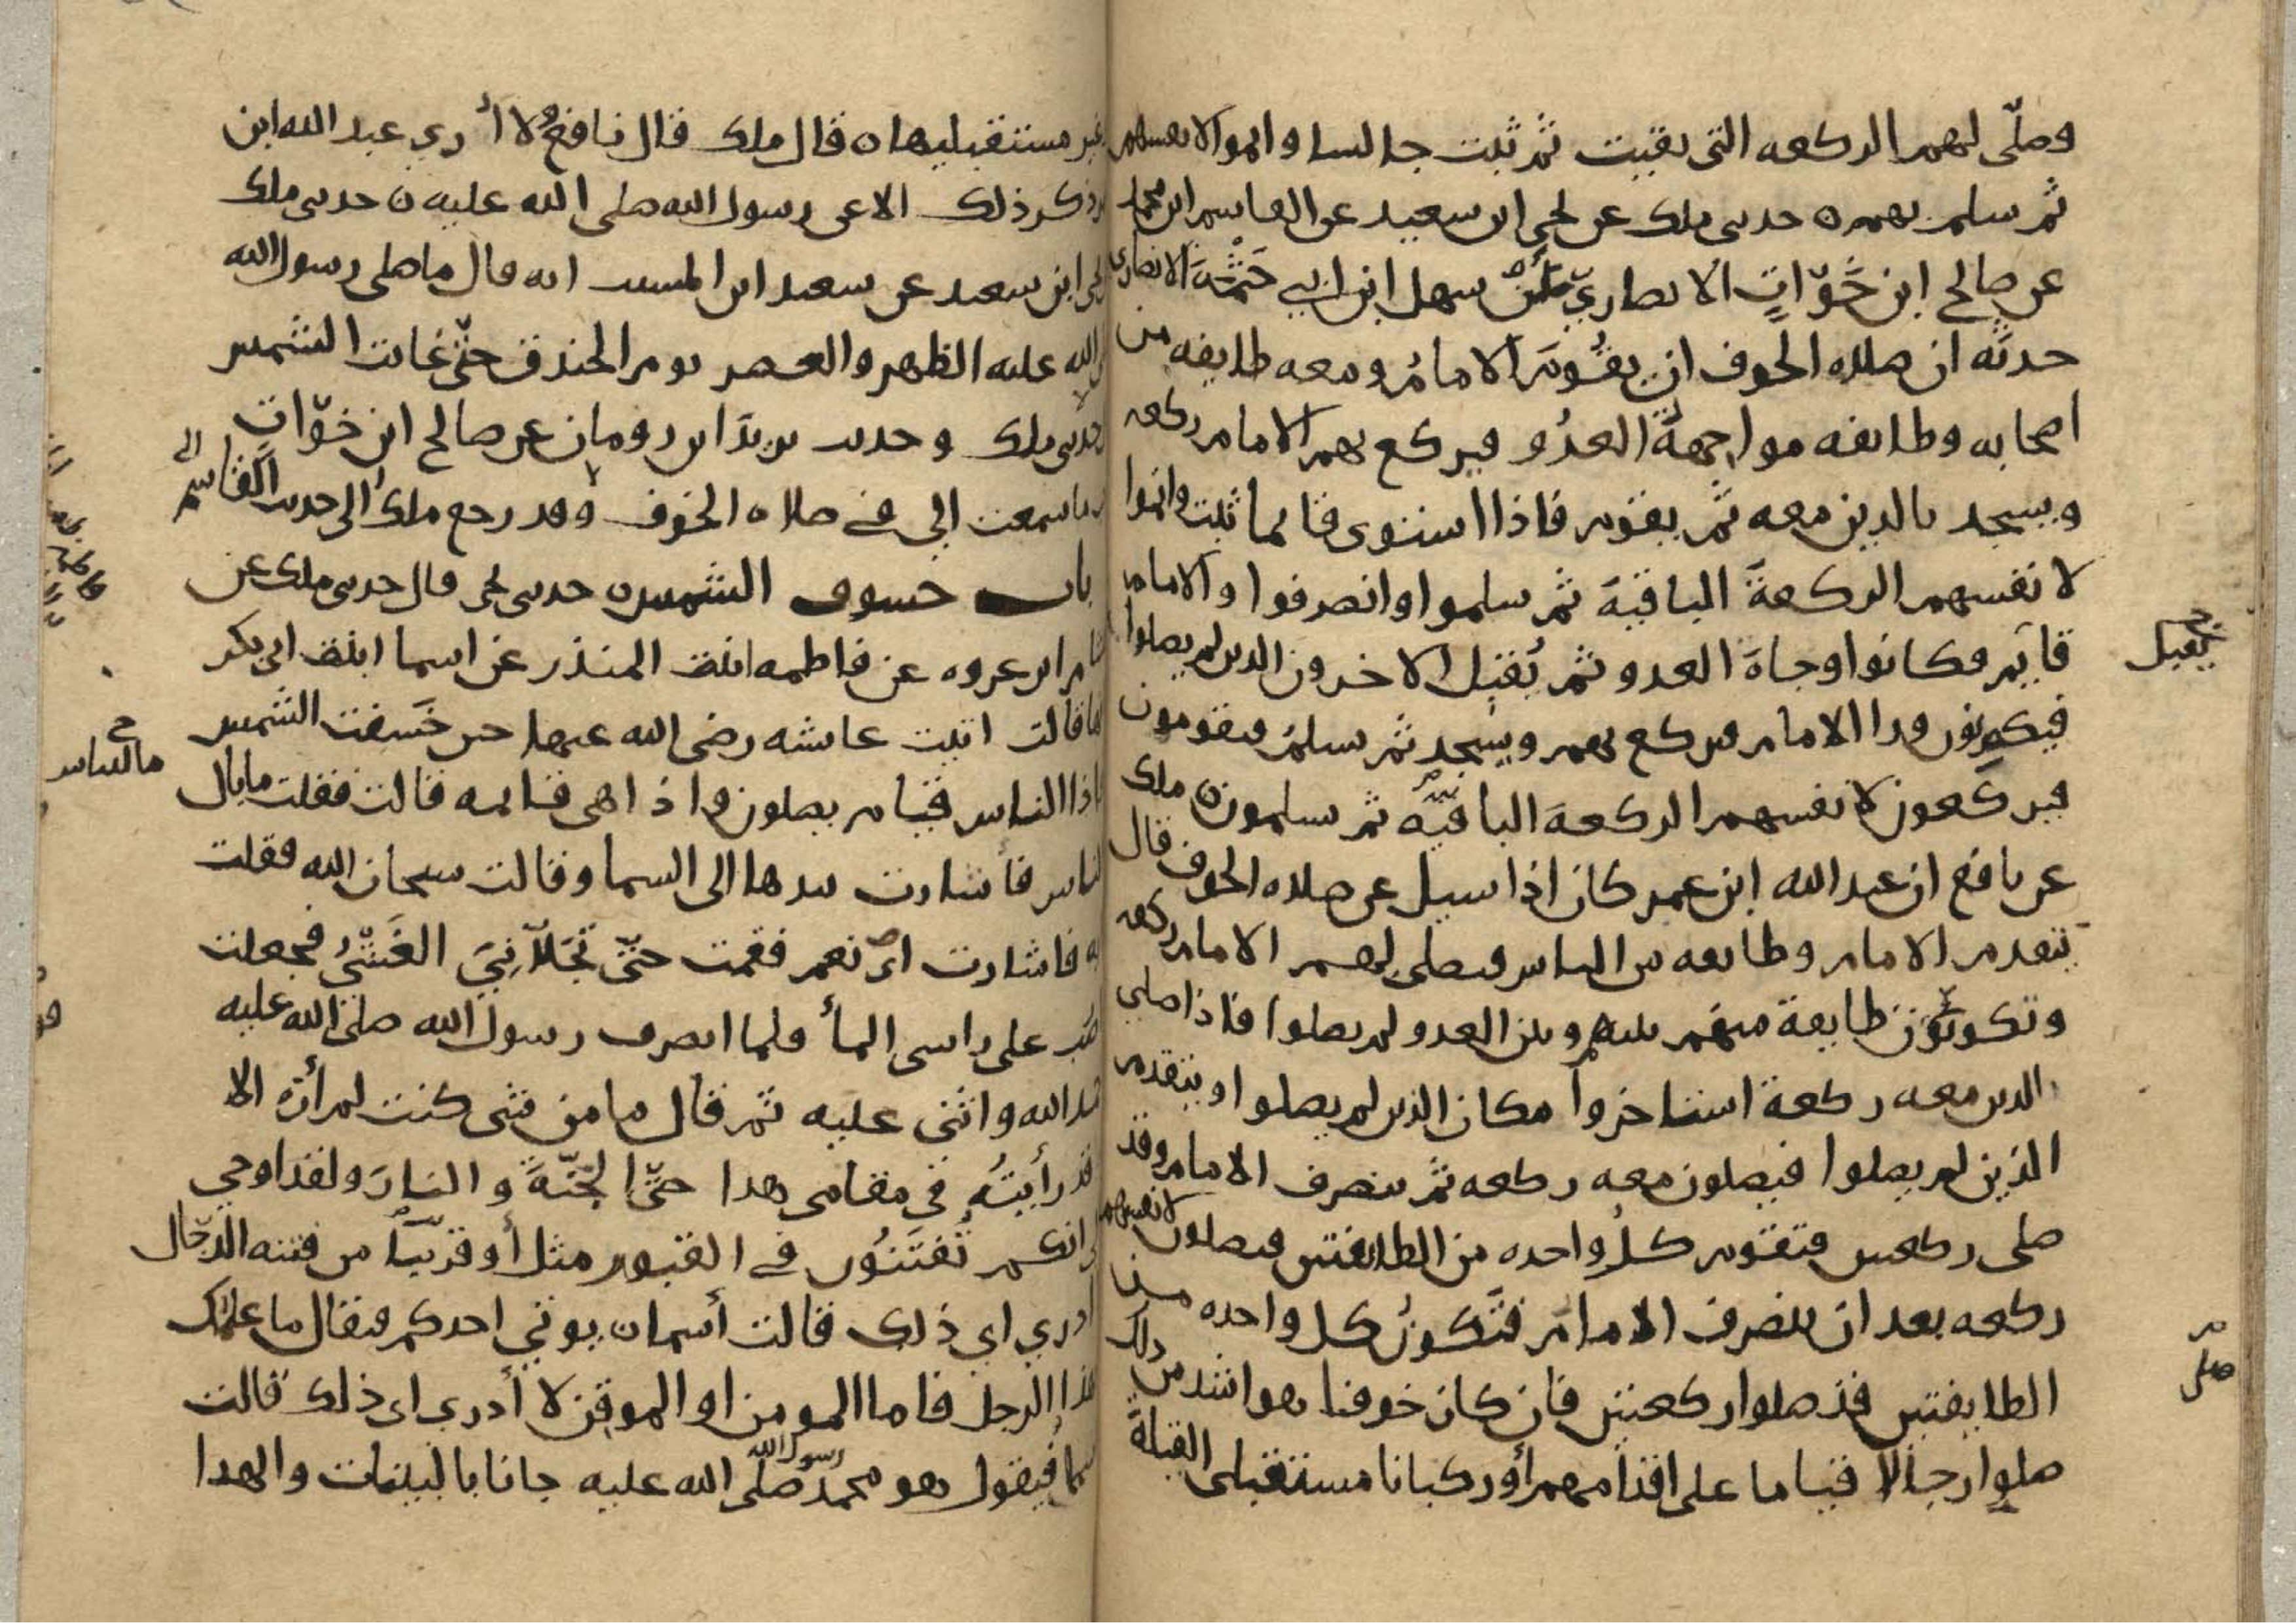 وصلّى لهم الركعه التى بقيت ثم ثبت جالسا واتموا لانفسهم
ثم سلم بهم ه حدثنى ملك عن يحيى ابن سعيد عن القاسم ابن محمد
عن صالح ابن خَوّاتٍ الانصاريّ أنّ سهل ابن ابي حَثْمَةَ الانصارى
حدثه ان صلاه الخوف ان يقُومَ الامامُ ومعه طايفه من
اصحابه وطايفه مواجِهةُ العدُو فيركع بهم الامام ركعه
ويسجد بالذين معه ثم يقوم فاذا استوى قايما ثبت واتموا
لانفسهم الركعةَ الباقيةَ ثم سلموا وانصرفوا والامام
قايم فكانوا وجاهَ العدو ثم يُقبِل الاخرون الذين لم يصلوا
يقبل
فيكبرون ورا الامام فيركع بهم ويسجد ثم يسلمُ فيقومون
فيركعون لانفسهم الركعةَ الباقيّه ثم يسلمون ه ملك
عن نافع ان عبد الله ابن عمر كان اذا سيل عن صلاه الخوف قال
يتقدم الامام وطايفه من الناس فيصلى لهم الامام ركعه
وتكون طايفة منهم بينهم وبين العدو لم يصلوا فاذا صلى
الذين معه ركعة استاخروا مكان الذين لم يصلوا ويتقدم
الذين لم يصلوا فيصلون معه ركعه ثم ينصرف الامام وقد
صلى ركعتين فتقوم كلُ واحده من الطايفتين فيصلون لانفسهم
ركعه بعد ان ينصرف الامام فتَكونُ كل واحده من
الطايفتين قد صلوا ركعتين فان كان خوفا هو اشد من ذلك
صلى
صلوا رجالا قياما على اقدامهم أو ركبانا مستقبلى القبلة
غير مستقبليها ه قال ملك قال نافعٌ لا أُرى عبد الله ابن
ذكر ذلك الا عن رسول الله صلى الله عليه ه حدثنى ملك
يحيى ابن سعيد عن سعيد ابن المسيب انه قال ما صلى رسول الله
الله عليه الظهر والعصر يوم الخندق حتّى غابت الشمس
حدثنى ملك وحديث يزيدَ ابن رومان عن صالح ابن خوّاتٍ
ما سمعت الي في صلاه الخوف وقد رجع ملك الى حديث القاسم
باب خسوف الشمس ه حدثنى يحيى قال حدثنى ملك عن
هشام ابن عروه عن فاطمه ابنت المنذر عن اسما ابنت ابى بكر
انها قالت اتيت عايشه رضى الله عنها حين خَسَفت الشمس
فاذا الناس قيام يصلون واذا هى قايمه قالت فقلت ما بال
ما للناس
الناس فأشارت بيدها الى السما وقالت سبحان الله فقلت
ايه فاشارت اىْ نعم فقمت حتّى تجَلّانِىَ الغَشْىُ فجعلت
اصب على راسى المأ فلما انصرف رسول الله صلى الله عليه
حمد الله واثنى عليه ثم قال ما من شى كنت لم أره الا
قد رأيتُه في مقامى هذا حتّى الجنّةَ والنارَ ولقد اوحي
الى انكم تُفتَنُون في القبور مثل أو قريباً من فتنه الدجال
ادري اى ذلك قالت أسما ه يوتي احدكم فيقال ما علمك
هذا الرجل فاما المومن او الموقن لا أدري اى ذلك قالت
اسما فيقول هو محمد رسول الله صلى الله عليه جانا بالبينات والهدا